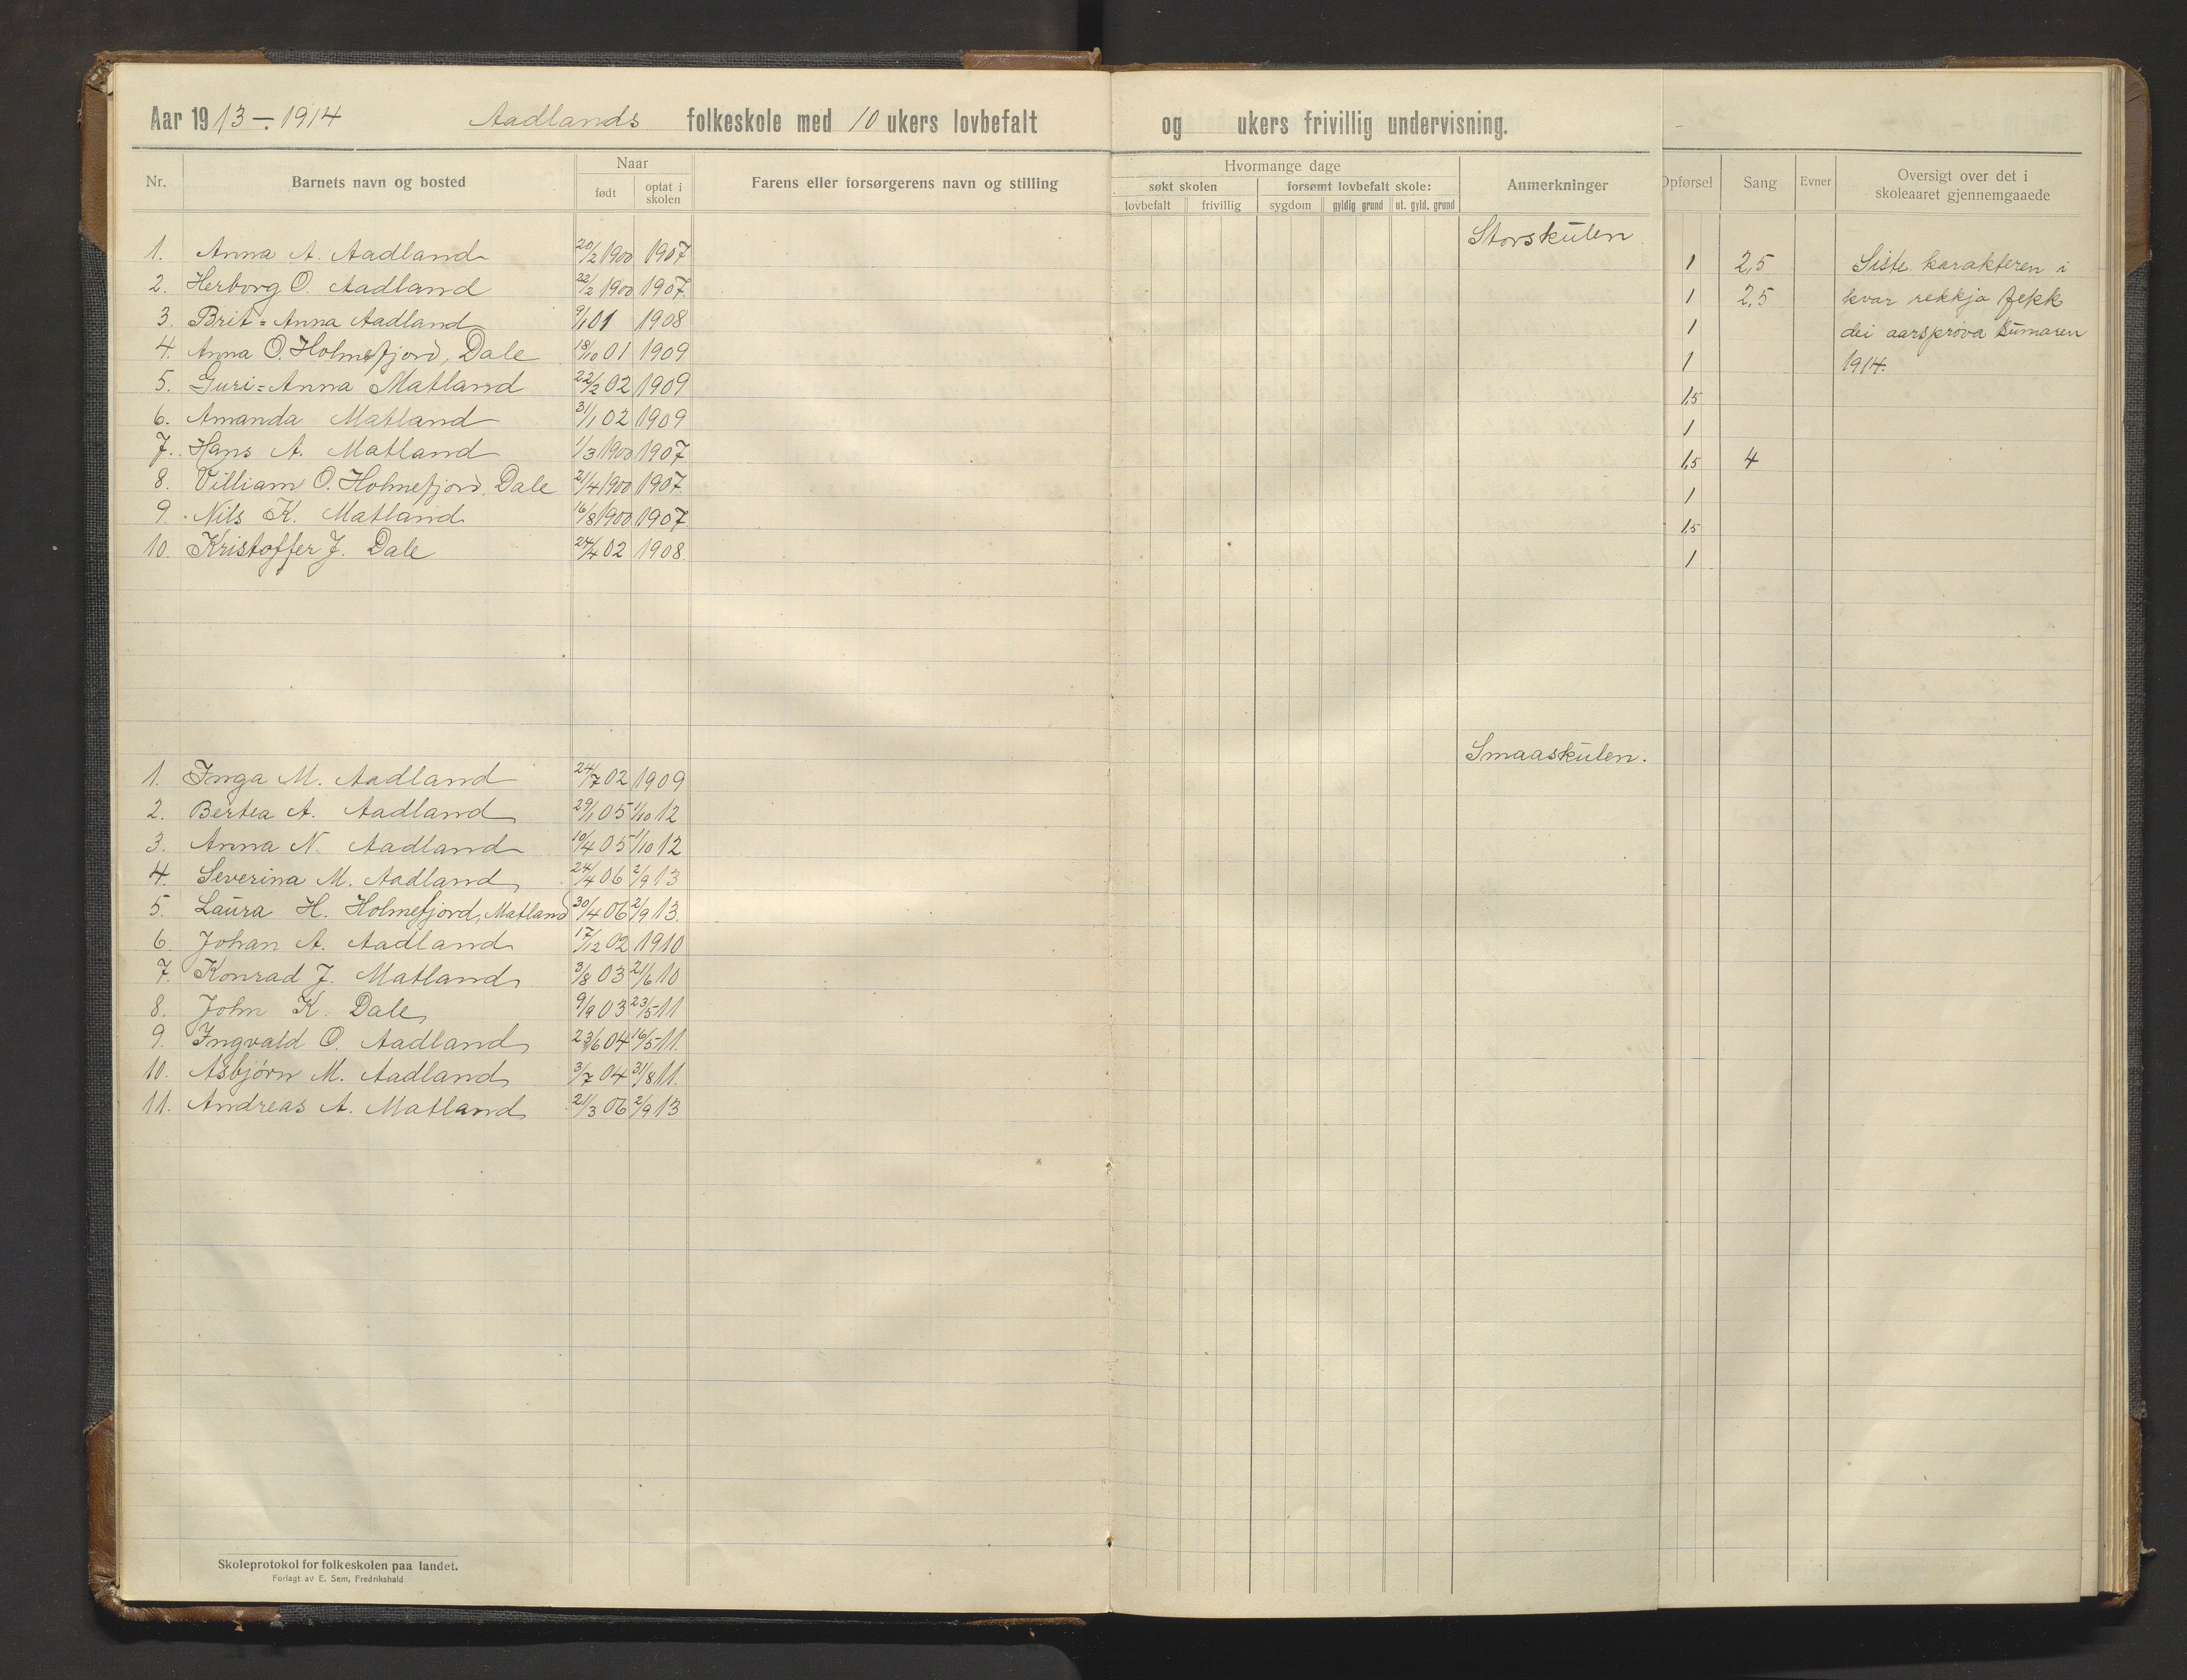 Aar 1913 - 1914 Aadlands folkeskole med 10 ukers lovbefalt og ukers frivillig undervisning.
Nr. Barnets navn og bosted Naar født optat i skolen Farens eller forsørgerens navn og stilling Hvormange dage søkt skolen lovbefalt frivillig forsømt lovbefalt skole: sygdom gyldig grund ut. gyld. grund Anmerkninger Opførsel Sang Evner Oversigt over det i skoleaaret gjennemgaaede
Storskulen.
1. Anna A. Aadland 20/2 1900 1907 1 2,5 Siste karakteren i
2. Herborg O. Aadland 22/2 1900 1907. 1 2,5 kvar rekkja fekk
3. Brit=Anna Aadland 9/1 01 1908 1 dei aarsprøva sumaren
4. Anna O. Holmefjord, Dale 18/10 01 1909 1 1914.
5. Guri=Anna Matland 22/2 02 1909 1,5
6. Amanda Matland 31/1 02 1909 1
7. Hans A. Matland 1/3 1900 1907. 1,5 4
8. Villiam O. Holmefjord, Dale 21/4 1900 1907. 1
9. Nils K. Matland 16/8 1900 1907. 1,5
10. Kristoffer J. Dale 24/4 02 1908. 1
Smaaskulen.
1. Inga M. Aadland 24/7 02 1909
2. Bertea A. Aadland 29/1 05 1/10 12
3. Anna N. Aadland 10/4 05 1/10 12
4. Severina M. Aadland 24/4 06 2/9 13
5. Laura H. Holmefjord, Matland 30/4 06 2/9 13.
6. Johan A. Aadland 17/12 02 1910
7. Konrad J. Matland 3/8 03 21/6 10
8. John K. Dale 9/9 03 23/5 11
9. Ingvald O. Aadland 23/6 04 16/5 11.
10. Asbjørn M. Aadland 3/7 04 31/8 11.
11. Andreas A. Matland 21/3 06 2/9 13
Skoleprotokol for folkeskolen paa landet.
Forlagt av E. Sem, Fredrikshald